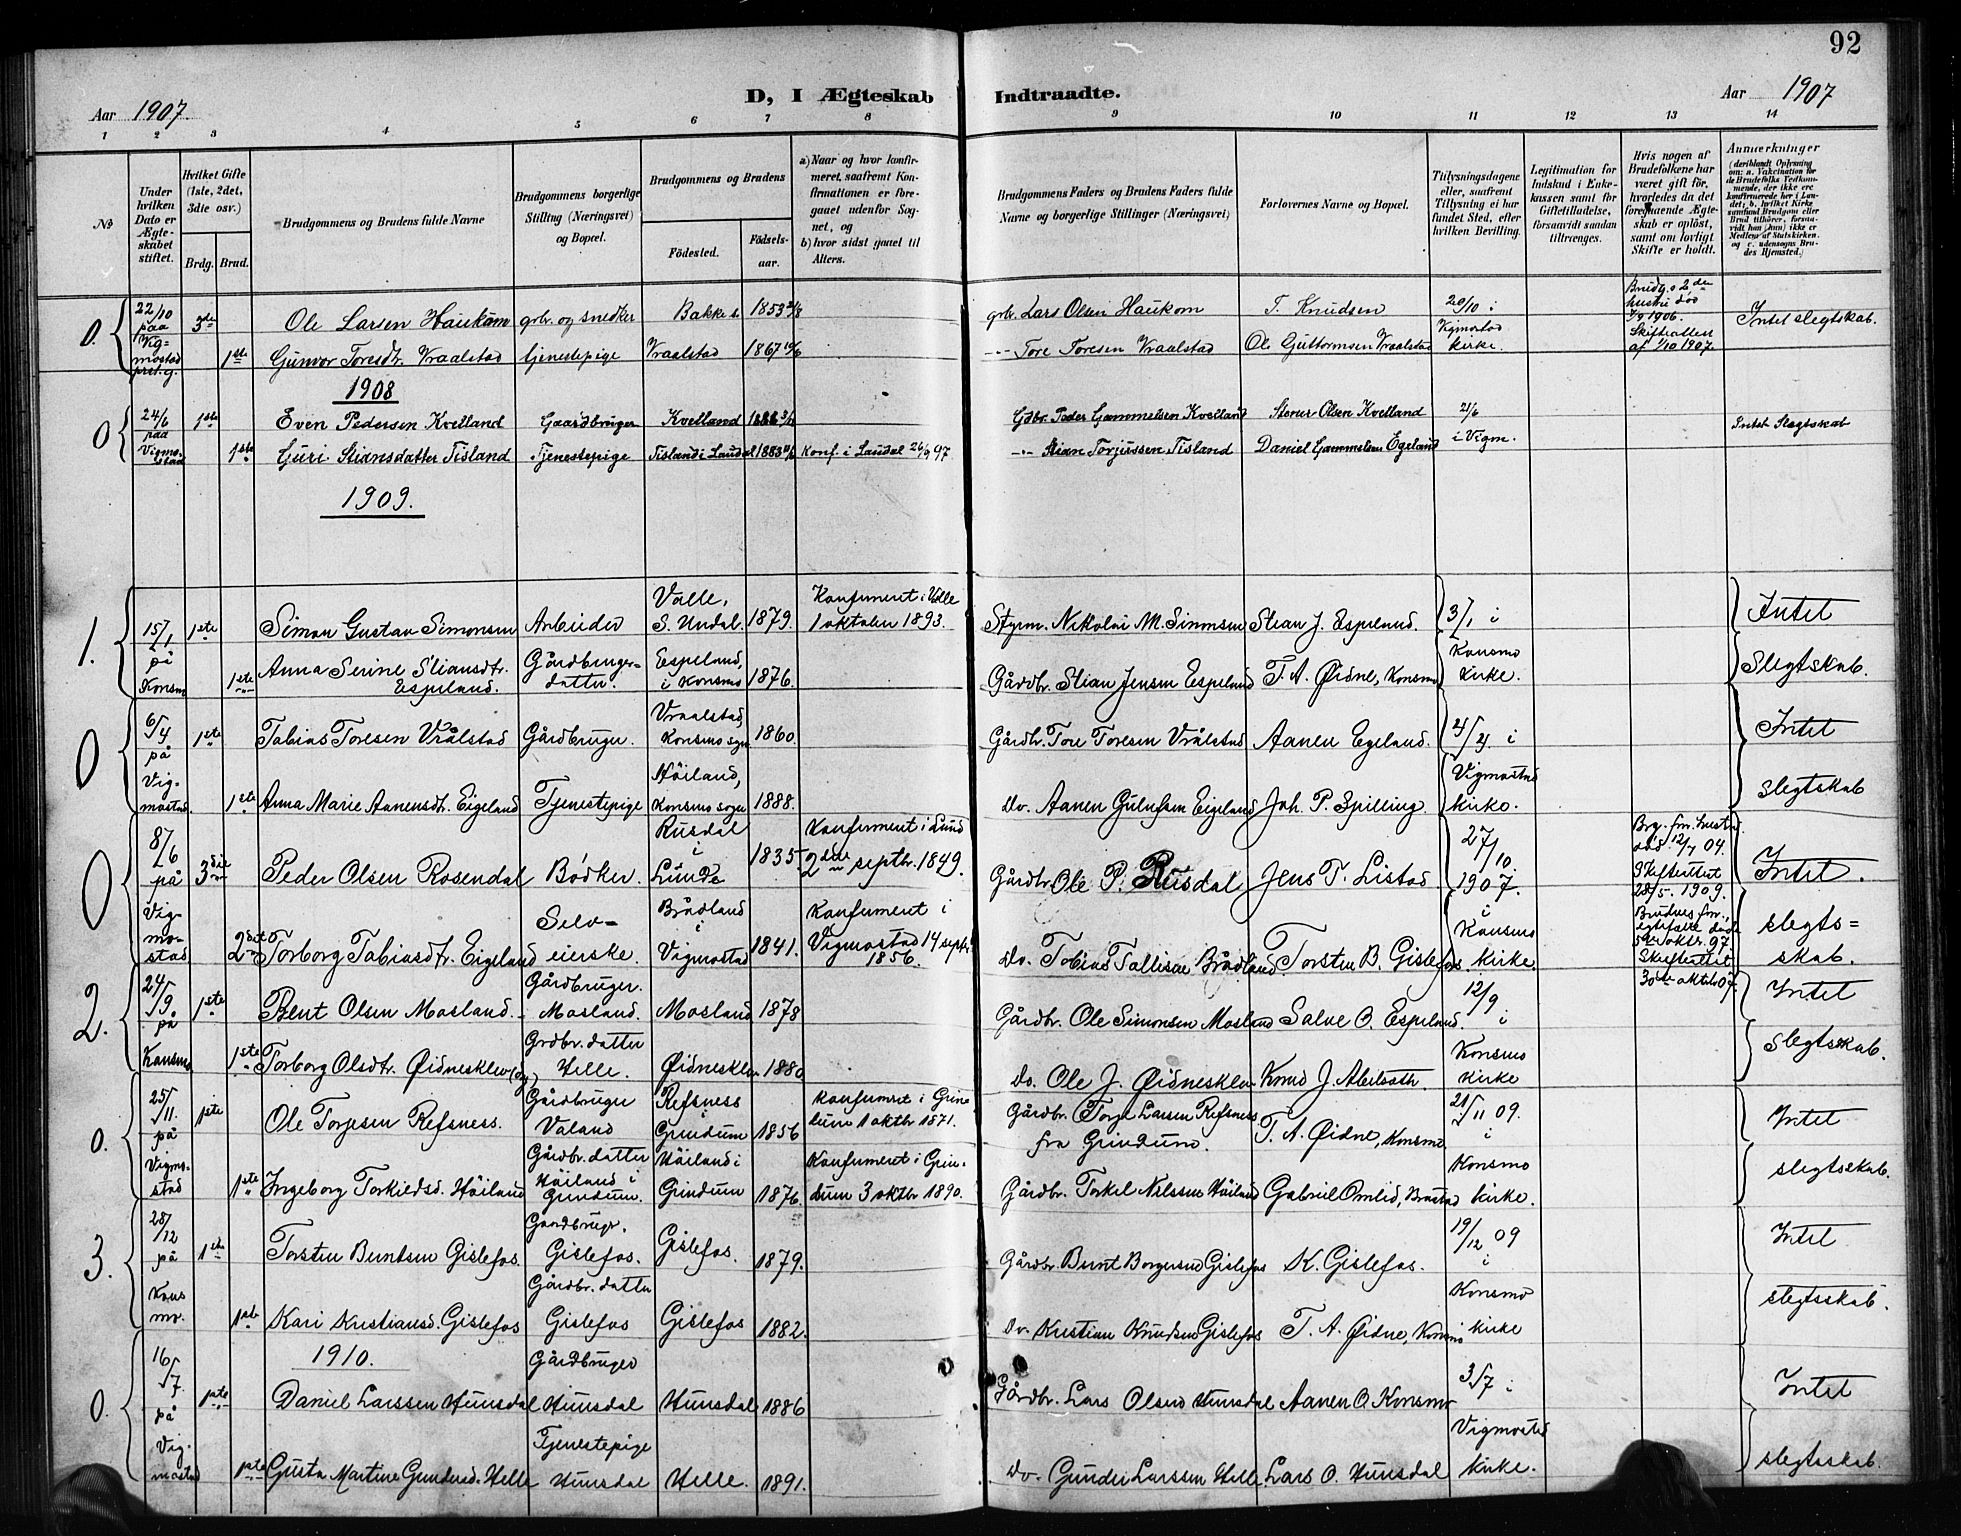 92
Aar 1907.
D, I Ægteskab Indtraadte.
Aar 1907
1 2 3 4 5 6 7 8 9 10 11 12 13 14
No
Under hvilken Dato er Ægteskabet stiftet.
Hvilket Gifte (1ste, 2det, 3die osv.)
Brdg. Brud.
Brudgommens og Brudens fulde Navne
Brudgommens borgerlige Stilling (Næringsvei) og Bopæl.
Brudgommens og Brudens
Fødested.
Fødselsaar.
a) Naar og hvor konfirmeret, saafremt Konfirmationen er foregaaet udenfor Sognet, og
b) hvor sidst gaaet til Alters.
Brudgommens Faders og Brudens Faders fulde Navne og borgerlige Stillinger (Næringsvei)
Forlovernes Navne og Bopæl.
Tillysningsdagene eller, saafremt Tillysning ei har fundet Sted, efter hvilken Bevilling.
Legitimation for Indskud i Enkekassen samt for Giftetilladelse, forsaavidt saadan tiltrænges.
Hvis nogen af Brudefolkene har været gift før, hvorledes da det foregaaende Ægteskab er opløst, samt om lovligt Skifte er holdt.
Anmerkninger
(deriblandt Oplysning om: a. Vakcination for de Brudefolks Vedkommende, der ikke ere konfirmerede her i Landet; b. hvilket Kirkesamfund Brudgom eller Brud tilhører, forsaavidt han (hun) ikke er Medlem af Statskirken og c. udensogns Brudes Hjemsted.)
0. 22/10 paa Vigmostad prst.g. 3de Ole Larsen Haukom grbr. og snedker Bakke s. 1853 grbr. Lars Olsen Haukom T. Knudsen 20/10 i Vigmostad kirke. Brudg.s 2den hustru død 7/9 1906. Skifteattest af 1/10 1907. Intet slegtskab.
1ste Gunvor Toresdtr. Vraalstad tjenestepige Vraalstad 1867 -"- Tore Toresen Vraalstad Ole Guttormsen Vraalstad
1908
0 24/6 paa Vigmostad 1ste Even Pedersen Kvelland Gaardbruger Kvelland Gdbr. Peder Gammelsen Kvelland Sterur Olsen Kvelland 21/6 i Vigm. Intet Slegtskab
1ste Guri Stiansdatter Tisland Tjenestepige Tisland i Laudal 1883 Konf. i Laudal 26/9 97 -"- Stian Torjussen Tisland Daniel Gammelsen Egeland
1909.
1. 15/1 på Konsmo 1ste Simon Gustav Simonsen Arbeider Valle, S. Undal. 1879. Konfirmeret i Valle 1 oktober 1893. Styrm. Nikolai M. Simonsen Stian J. Espeland. 3/1 i Konsmo Kirke. Intet Slegtskab.
1ste Anna Serine Stiansdtr. Espeland. Gårdbruger-datter. Espeland, i Konsmo 1876. Gårdbr. Stian Jensen Espeland T. A. Øidne, Konsmo
0 6/4 på Vigmostad. 1ste Tobias Toresen Vrålstad Gårdbruger. Vraalstad, Konsmo sogn 1860. Gårdbr. Tore Toresen Vrålstad Aanen Egeland. 4/4 i Vigmostad kirke. Intet slegtskab
1ste Anna Marie Aanensdtr. Eigeland Tjenestepige Höiland, Konsmo sogn 1888. do. Aanen Gulufsen Eigeland Joh. P. Spilling.
0 8/6 på Vigmostad 3die Peder Olsen Rosendal Bødker. Rusdal i Lunde 1835 Konfirmeret i Lund 2den septbr. 1849. Gårdbr. Ole P. Rusdal Jens T. Listad 27/10 1907. i Konsmo kirke. Brg. for. hustr. død 12/7 04. Skifteattest 28/5. 1909. Intet slegtsskab.
2det Torborg Tobiasdtr. Eigeland Selveierske. Brådland i Vigmostad 1841. Konfirmeret i Vigmostad 14 septbr 1856. do. Tobias Tallisen Brådland Torsten B. Gislefos Brudens for. egtefælle døde 5te oktr. 97 Skifteattest 30te oktbr 07
2. 24/9. på Konsmo 1ste Bent Olsen Mosland. Gårdbruger. Mosland. Mosland 1878 Gårdbr. Ole Simonsen Mosland Salve O. Espeland. 12/9 i Konsmo kirke Intet slegtskab.
1ste Torborg Olsdtr. Øidnesklev Grdbr. datter Helle. Øidnesklev 1880 do. Ole J. Øidnesklev Konrd J. Abelseth
0. 25/11 på Vigmostad 1ste Ole Torjesen Refsness. Gårdbruger Valand Refsness i Grindum 1856 Konfirmeret i Grindum 1 oktbr 1871. Gårdbr. Torje Larsen Refsness fra Grindum T. A. Øidne, Konsmo 21/11 09. i Konsmo kirke. Intet slegtsskab.
1ste Ingeborg Torkieldsd. Höiland Gårdbr. datter Höiland i Grindum. Höiland i Grindum 1876. Konfirmeret i Grindum 3 oktbr 1890. Gårdbr. Torkel Nilssen Höiland Gabriel Omlid, Brusted
3. 28/12 på Konsmo. 1ste Torsten Berntsen Gislefos. Gardbruger. Gislefos. Gislefos. 1879. Gårdbr. Bernt Borgersen Gislefos K. Gislefos. 19/12 09 i Konsmo kirke Intet slegtsskab.
1ste Kari Kristiansd. Gislefos Gårdbr. datter Gislefos Gislefos 1882. do. Kristian Knudsen Gislefos T. A. Øidne, Konsmo
1910.
0. 16/7. på Vigmostad 1ste Daniel Larssen Hunsdal Gårdbruger Hunsdal Hunsdal 1886 Gårdbr. Lars Olsen Hunsdal Aanen O. Konsmo 3/7 i Vigmostad kirke. Intet slegtsskab.
1ste Gusta Martine Gundersd. Helle Tjenestepige Hunsdal Helle. 1891. do. Gunder Larssen Helle. Lars O. Hunsdal